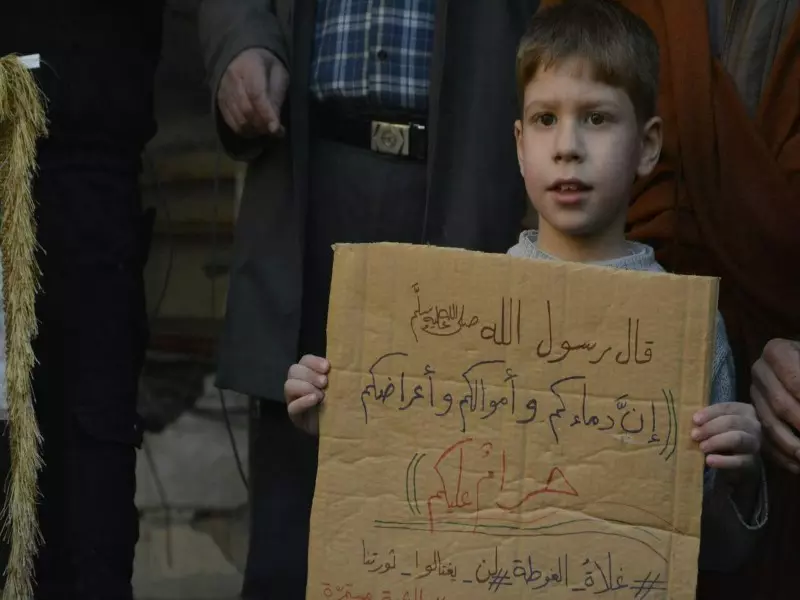 قال رسول الله صلى الله عليه وسلم
((إنَّ دماءكم وأموالكم وأعراضكم
حرامٌ عليكم))
#غلاةُ_الغوطة#لن_يغتالوا_ثورتنا